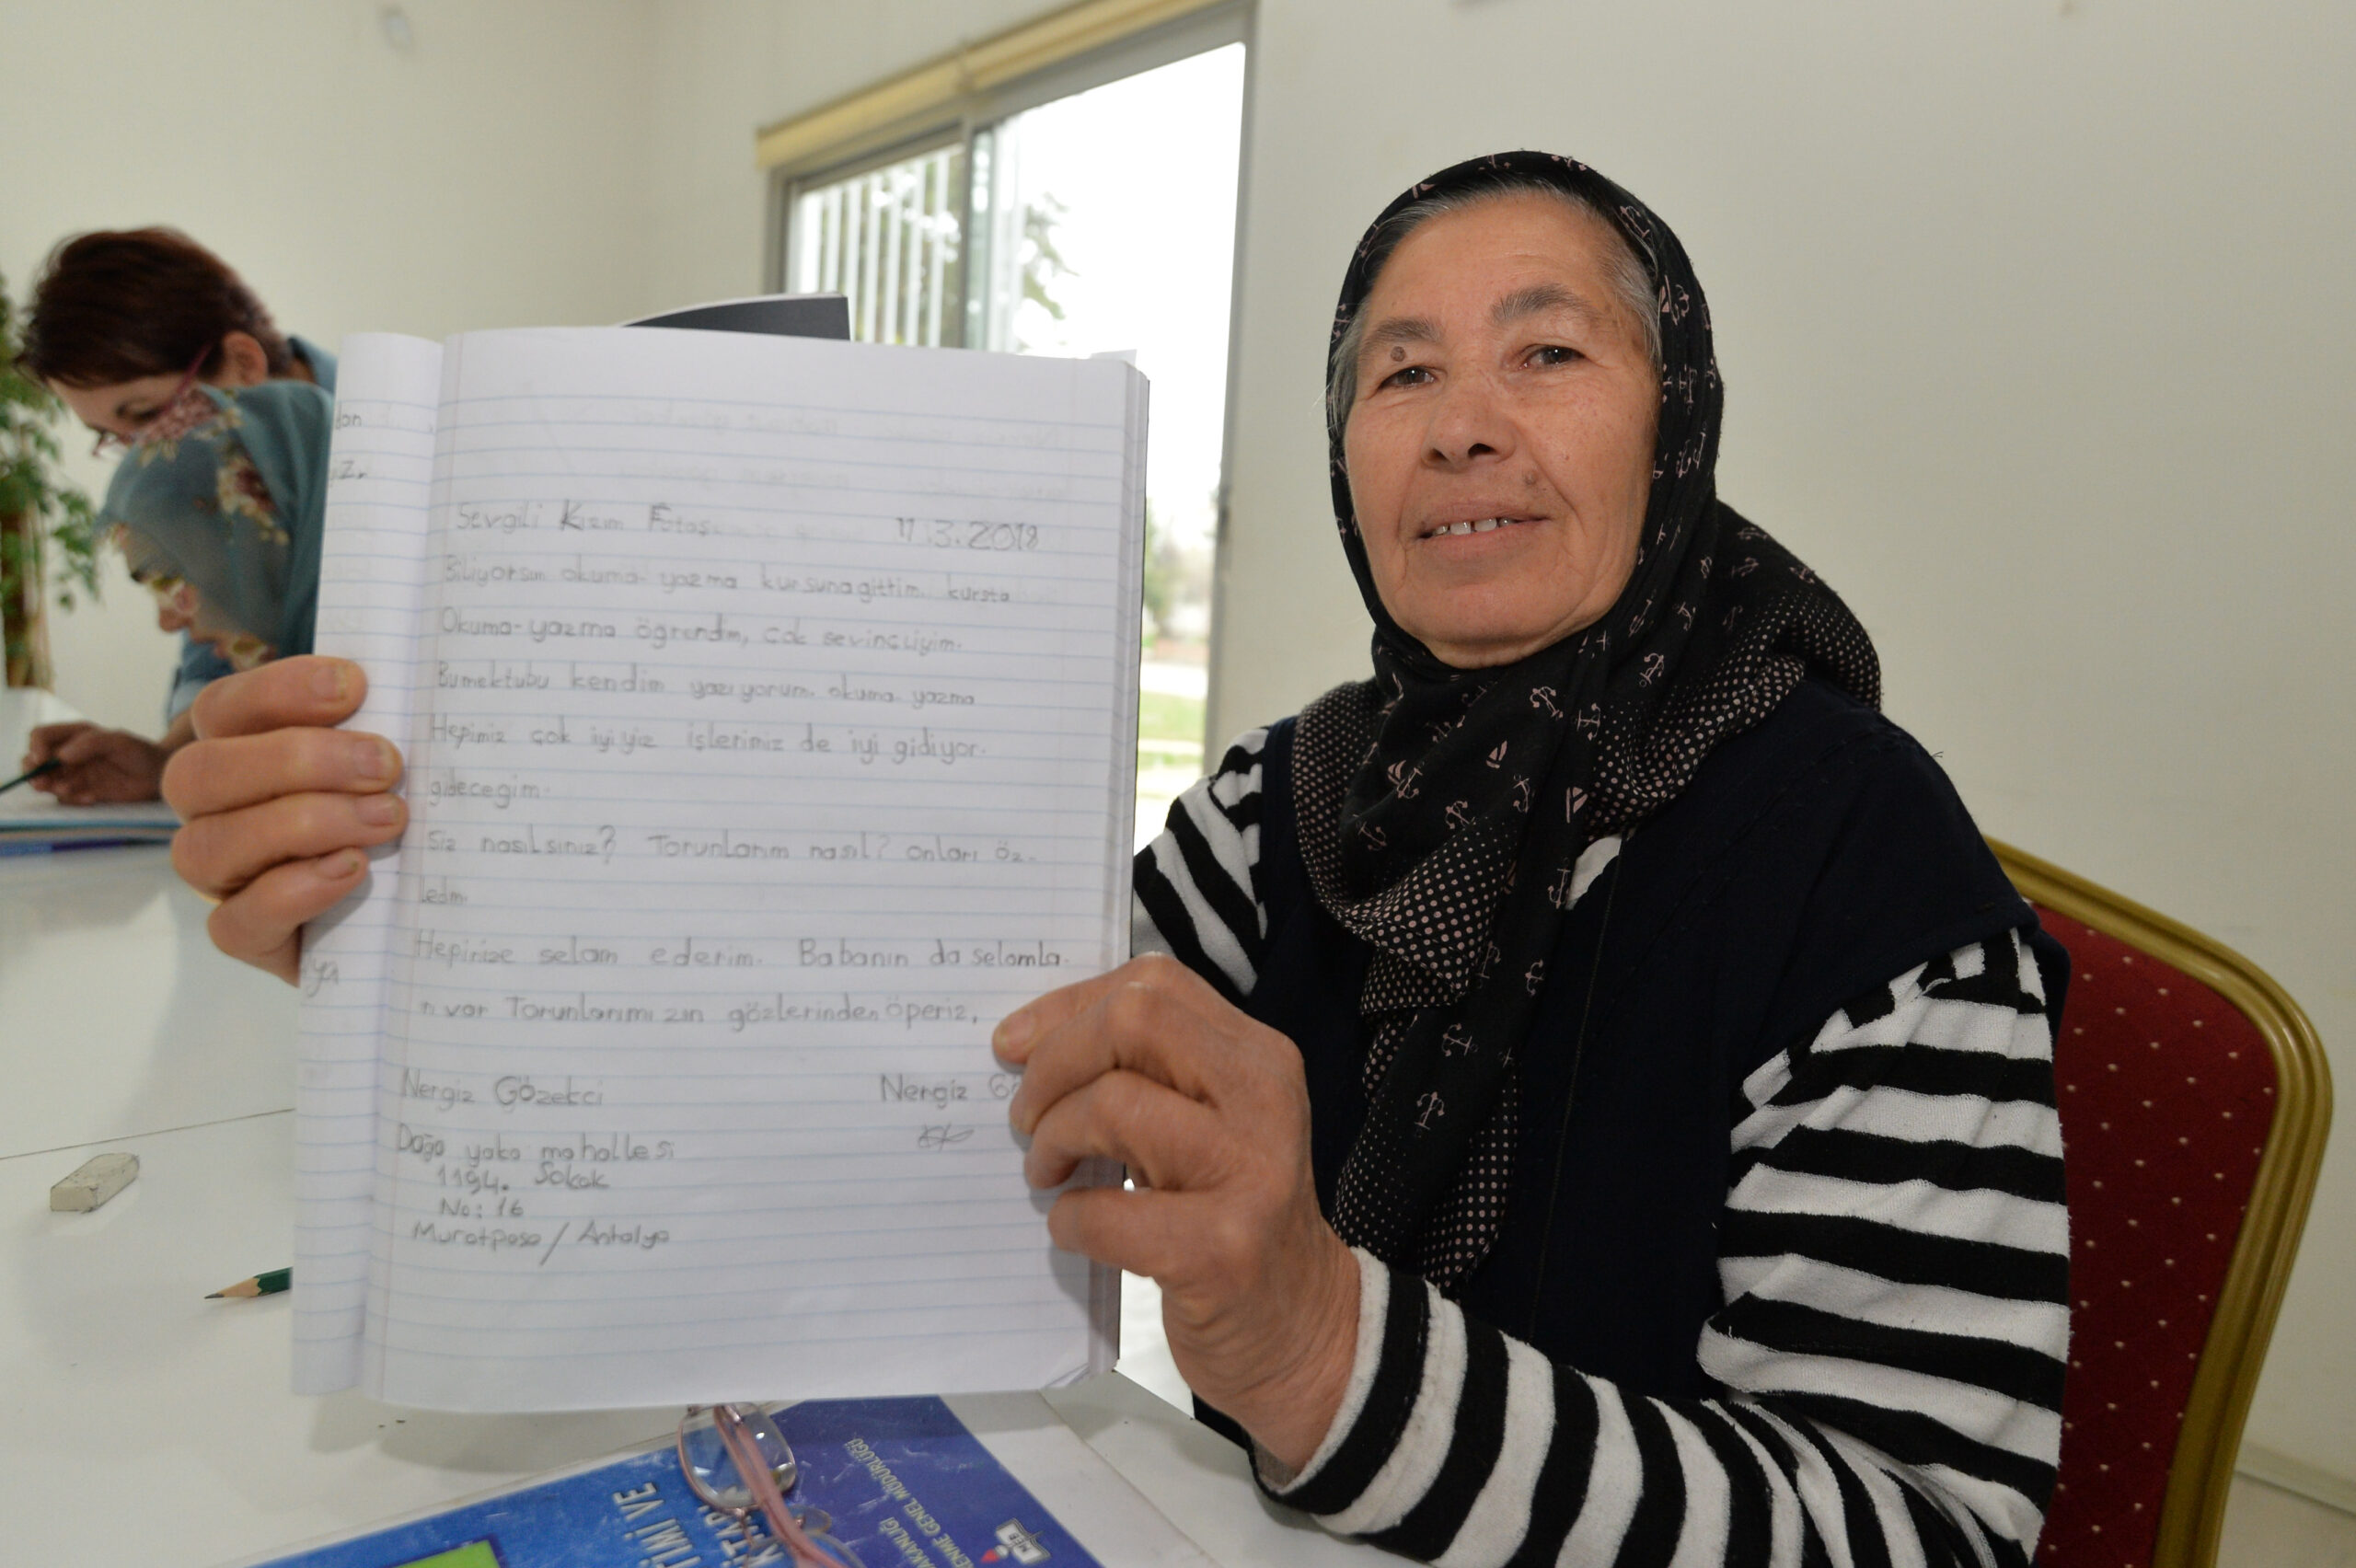 Sevgili Kızım 11.3.2018
Biliyorsun okuma-yazma kursuna gittim. kursta
Okuma-yazma öğrendim, çok sevinçliyim.
Bu mektubu kendim yazıyorum. okuma yazma
Hepimiz çok iyiyiz işlerimiz de iyi gidiyor.
gideceğim.
Siz nasılsınız? Torunlarım nasıl? onları öz-
ledm.
Hepinize selam ederim. Babanın da selamla-
rı var Torunlarımızın gözlerinden öperiz,
Nergiz Nergiz
Doğa yaka mahallesi
1194. Sokak
No: 16
Muratpaşa / Antalya
TİMİ VE
KİTABI
AKANLIĞI
ENME GENEL MÜDÜRLÜĞÜ
MEB